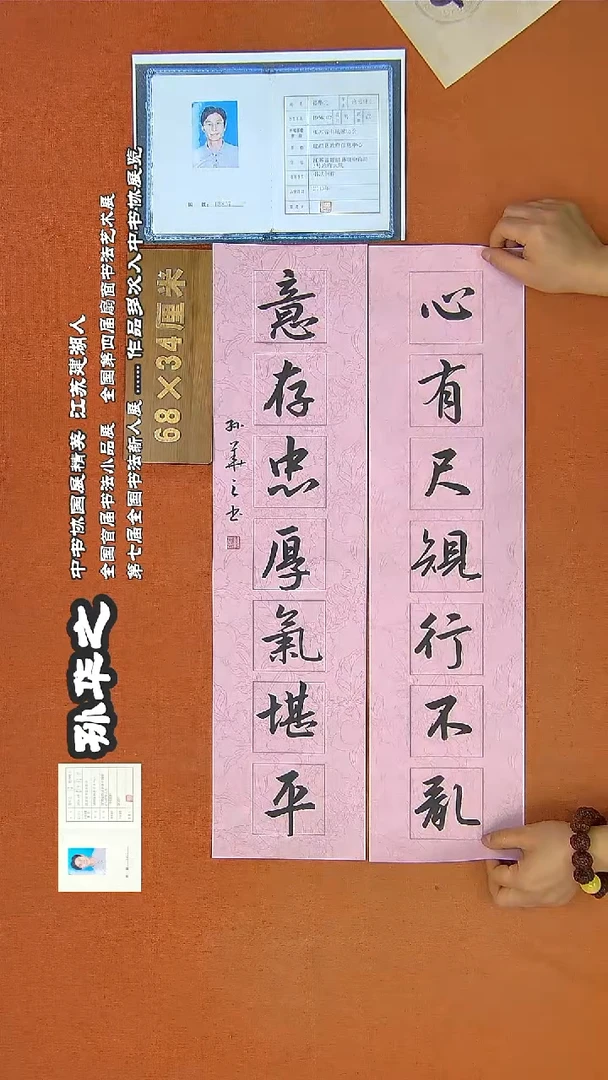 心有尺規行不亂
意存忠厚氣堪平
孙華之书
68×34厘米
孙华之
中书协国展精英 江苏建湖人
全国首届书法小品展 全国第四届扇面书法艺术展
第七届全国书法新人展……作品多次入中书协展览